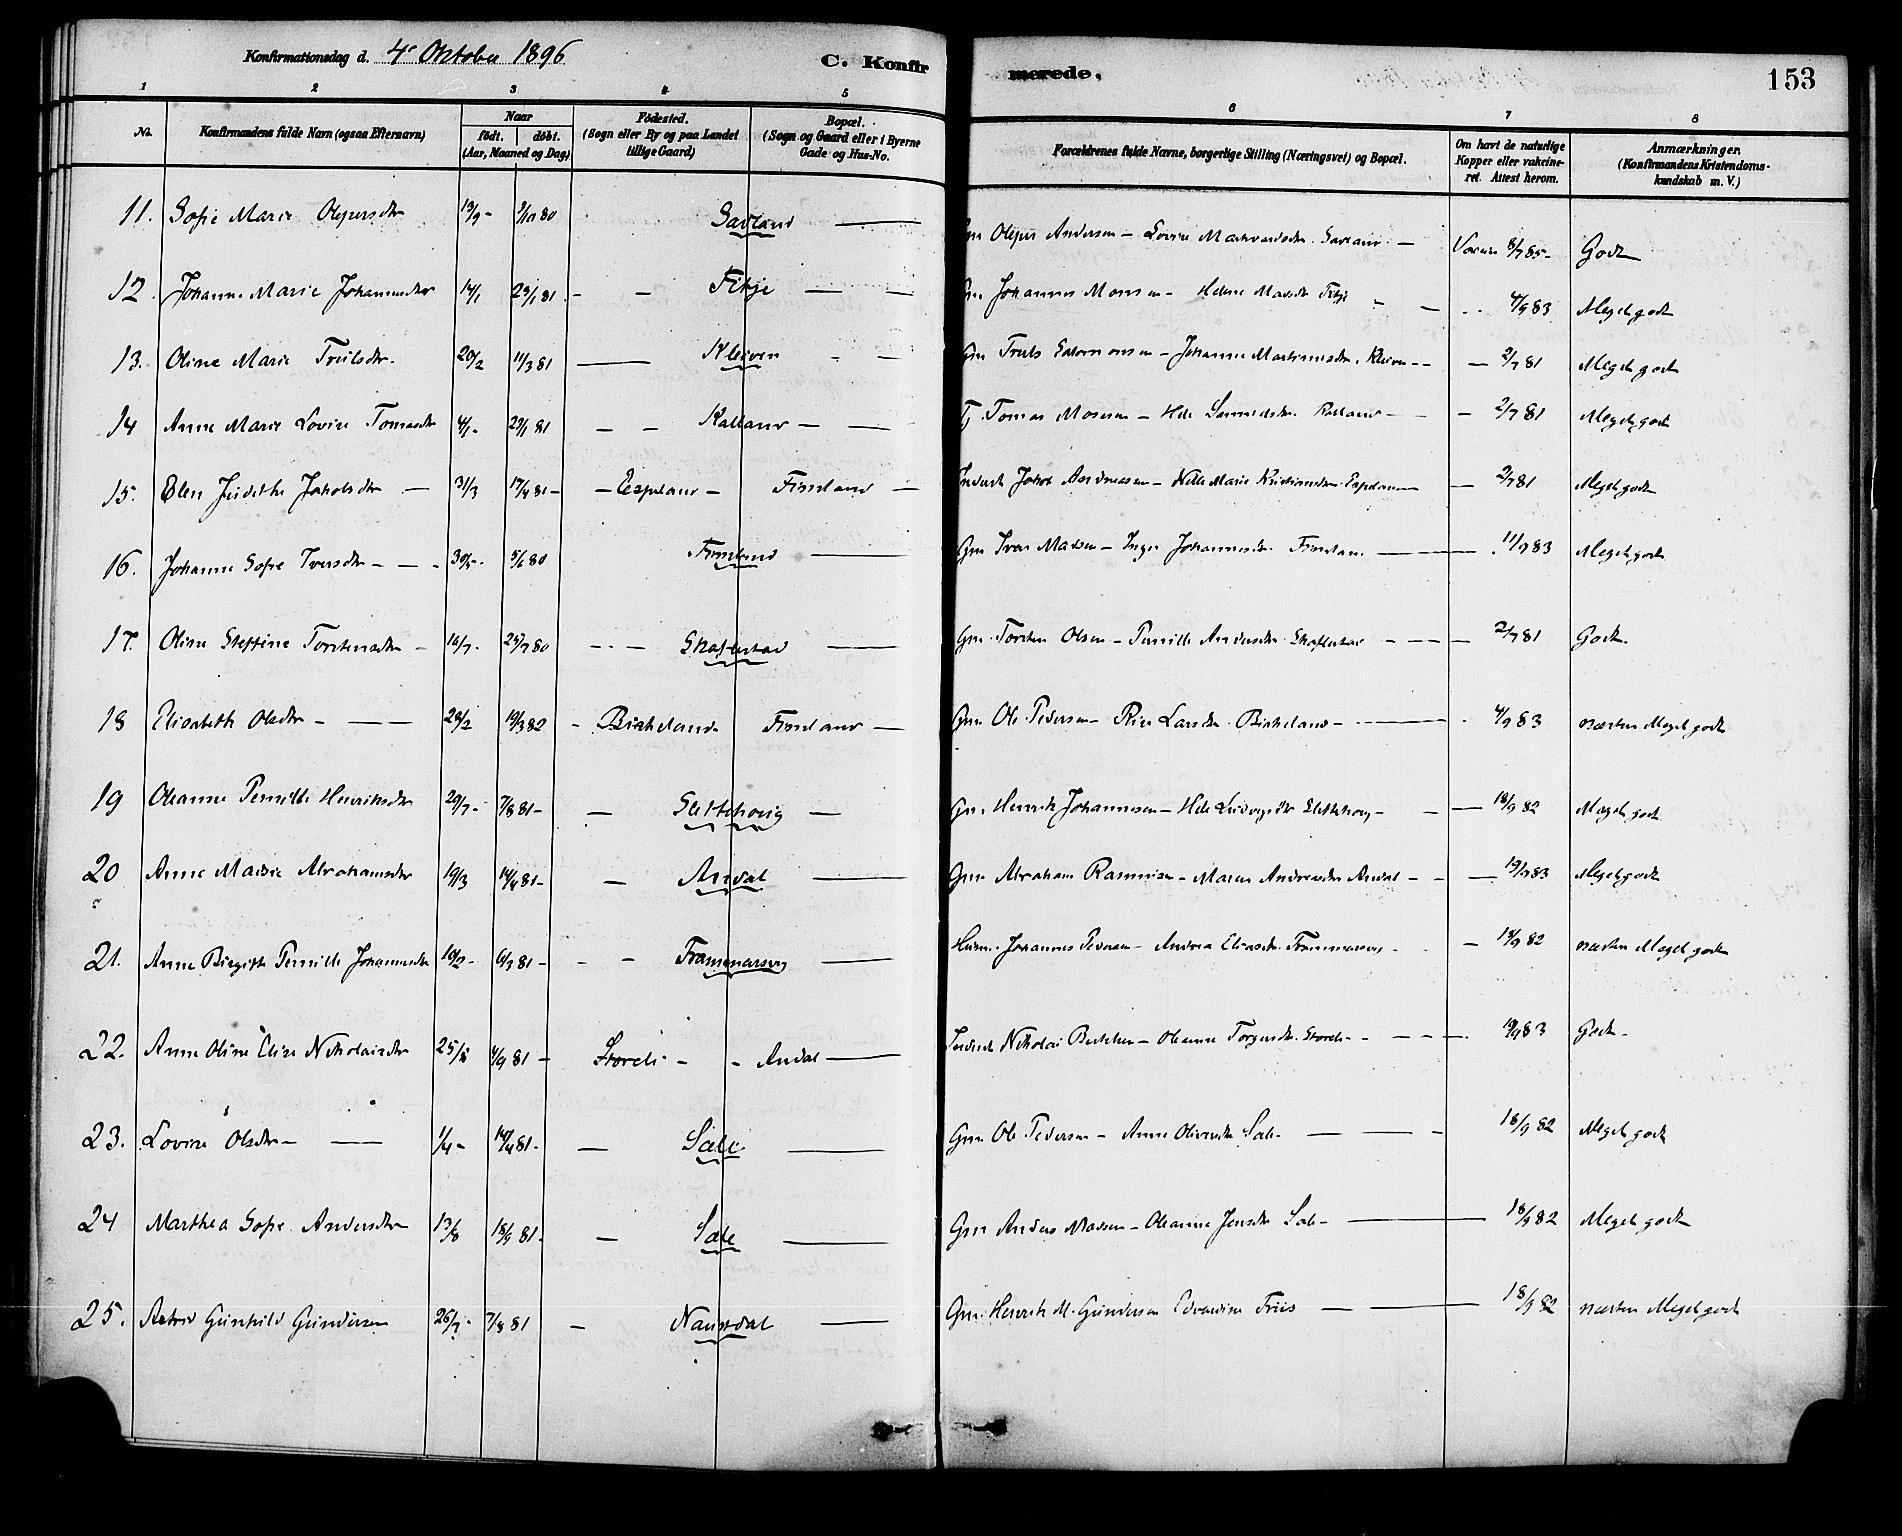 Konfirmationsdag d. 4de Oktober 1896 C. Konfir merede. 153
1 2 3 4 5 6 7 8
No. Konfirmandens fulde Navn (ogsaa Efternavn) Naar født. døbt. (Aar, Maaned og Dag) Fødested. (Sogn eller By og paa Landet tillige Gaard) Bopæl. (Sogn og Gaard eller i Byerne Gade og Hus-No. Forældrenes fulde Navne, borgerlige Stilling (Næringsvei) og Bopæl. Om havt de naturlige Kopper eller vakcineret. Attest herom. Anmærkninger. (Konfirmandens Kristendomskundskab m. V.)
11. Sofie Marie Olepersdtr 13/9 - 3/10 80 Savland — Gm Oleper Andersen - Lovise Markvardsdtr. Savland - Vaccin 8/7 85 - Godt
12. Johanne Marie Johannesdtr 14/1 23/1 81 - - Fitje — — Gm Johannes Monsen - Helene Madsdtr Fitje - - 4/9 83 Meget godt
13. Oline Marie Trulsdtr. 20/2 11/3 81 — Kleiven - — Gm Truls Salomonsen - Johanne Martinusdtr. Kleiven - - — 2/7 81 Meget godt
14 Anne Marie Lovise Tomasdtr 4/1 - 29/1 81 — - Kalland - — Tomas Mosesen - Helle Samuelsdtr. Kalland - - 2/7 81 Meget godt
15. Elen Judithe Jakobsdtr — 31/3 17/4 81 - - Espeland - Fimland — Inderst Jakob Andreassen - Nille Marie Kristiansdtr Espeland — 2/7 81 Meget godt
16. Johanne Sofie Iversdtr - - - 30/5 - 5/6 80 Fimland — Gm Iver Madsen - Inger Johannesdtr Fimland — 11/9 83 Meget godt
17. Oline Steffine Torstensdtr - 16/7 - 25/7 80 - - - Skaflestad — Gm. Torsten Olsen - Pernille Andersdtr Skaflestad - - - 2/7 81 Godt.
18 Elisabeth Olsdtr - — 28/2 19/3 82 - Birkeland Fimland — Gm Ole Pedersen - Rise Larsdtr. Birkeland - 4/9 83 næsten Meget godt
19 Oleanne Pernille Henriksdtr 29/7 - 7/8 81 - — Slettehovig — Gm. Henrik Johannesen - Helle Ludvigsdtr Slettehovig - — 18/9 82 Meget godt
20 Anne Marie Abrahamsdtr 19/3 14/4 81 - — Andal — Gm Abraham Rasmussen - Maren Andreasdtr Andal - - — 19/9 83 Meget godt
21. Anne Birgitte Pernille Johannesdtr 10/2 - 6/3 81 - - - Frammarsvig — Husm. Johannes Pedersen - Andrea Eliasdtr Frammarsvig - - 18/9 82 næsten Meget godt
22. Anne Oline Elise Nikolaisdtr 25/8 4/9 81 - Storeli - - Andal — Inderst Nikolai Bertelsen - Oleanne Torgersdtr. Storeli - - - — 19/9 83 Godt -
23. Lovise Olsdtr - — 1/4 - 14/4 81 - — Sæle — Gm Ole Pedersen - Anne Oliversdtr Sæle - — — - 18/9 82 Meget godt
24 Marthea Sofie Andersdtr 13/8 18/9 81 - — Sæle — Gm Anders Madsen - Oleanne Jensdtr Sæle - — 18/9 82 Meget godt
25. Astrid Gunhild Gundersen 26/7 - 7/8 81 — Naustdal — Gm. Henrik M. Gundersen Edvardine Friis — — 18/9 82 næsten Meget godt